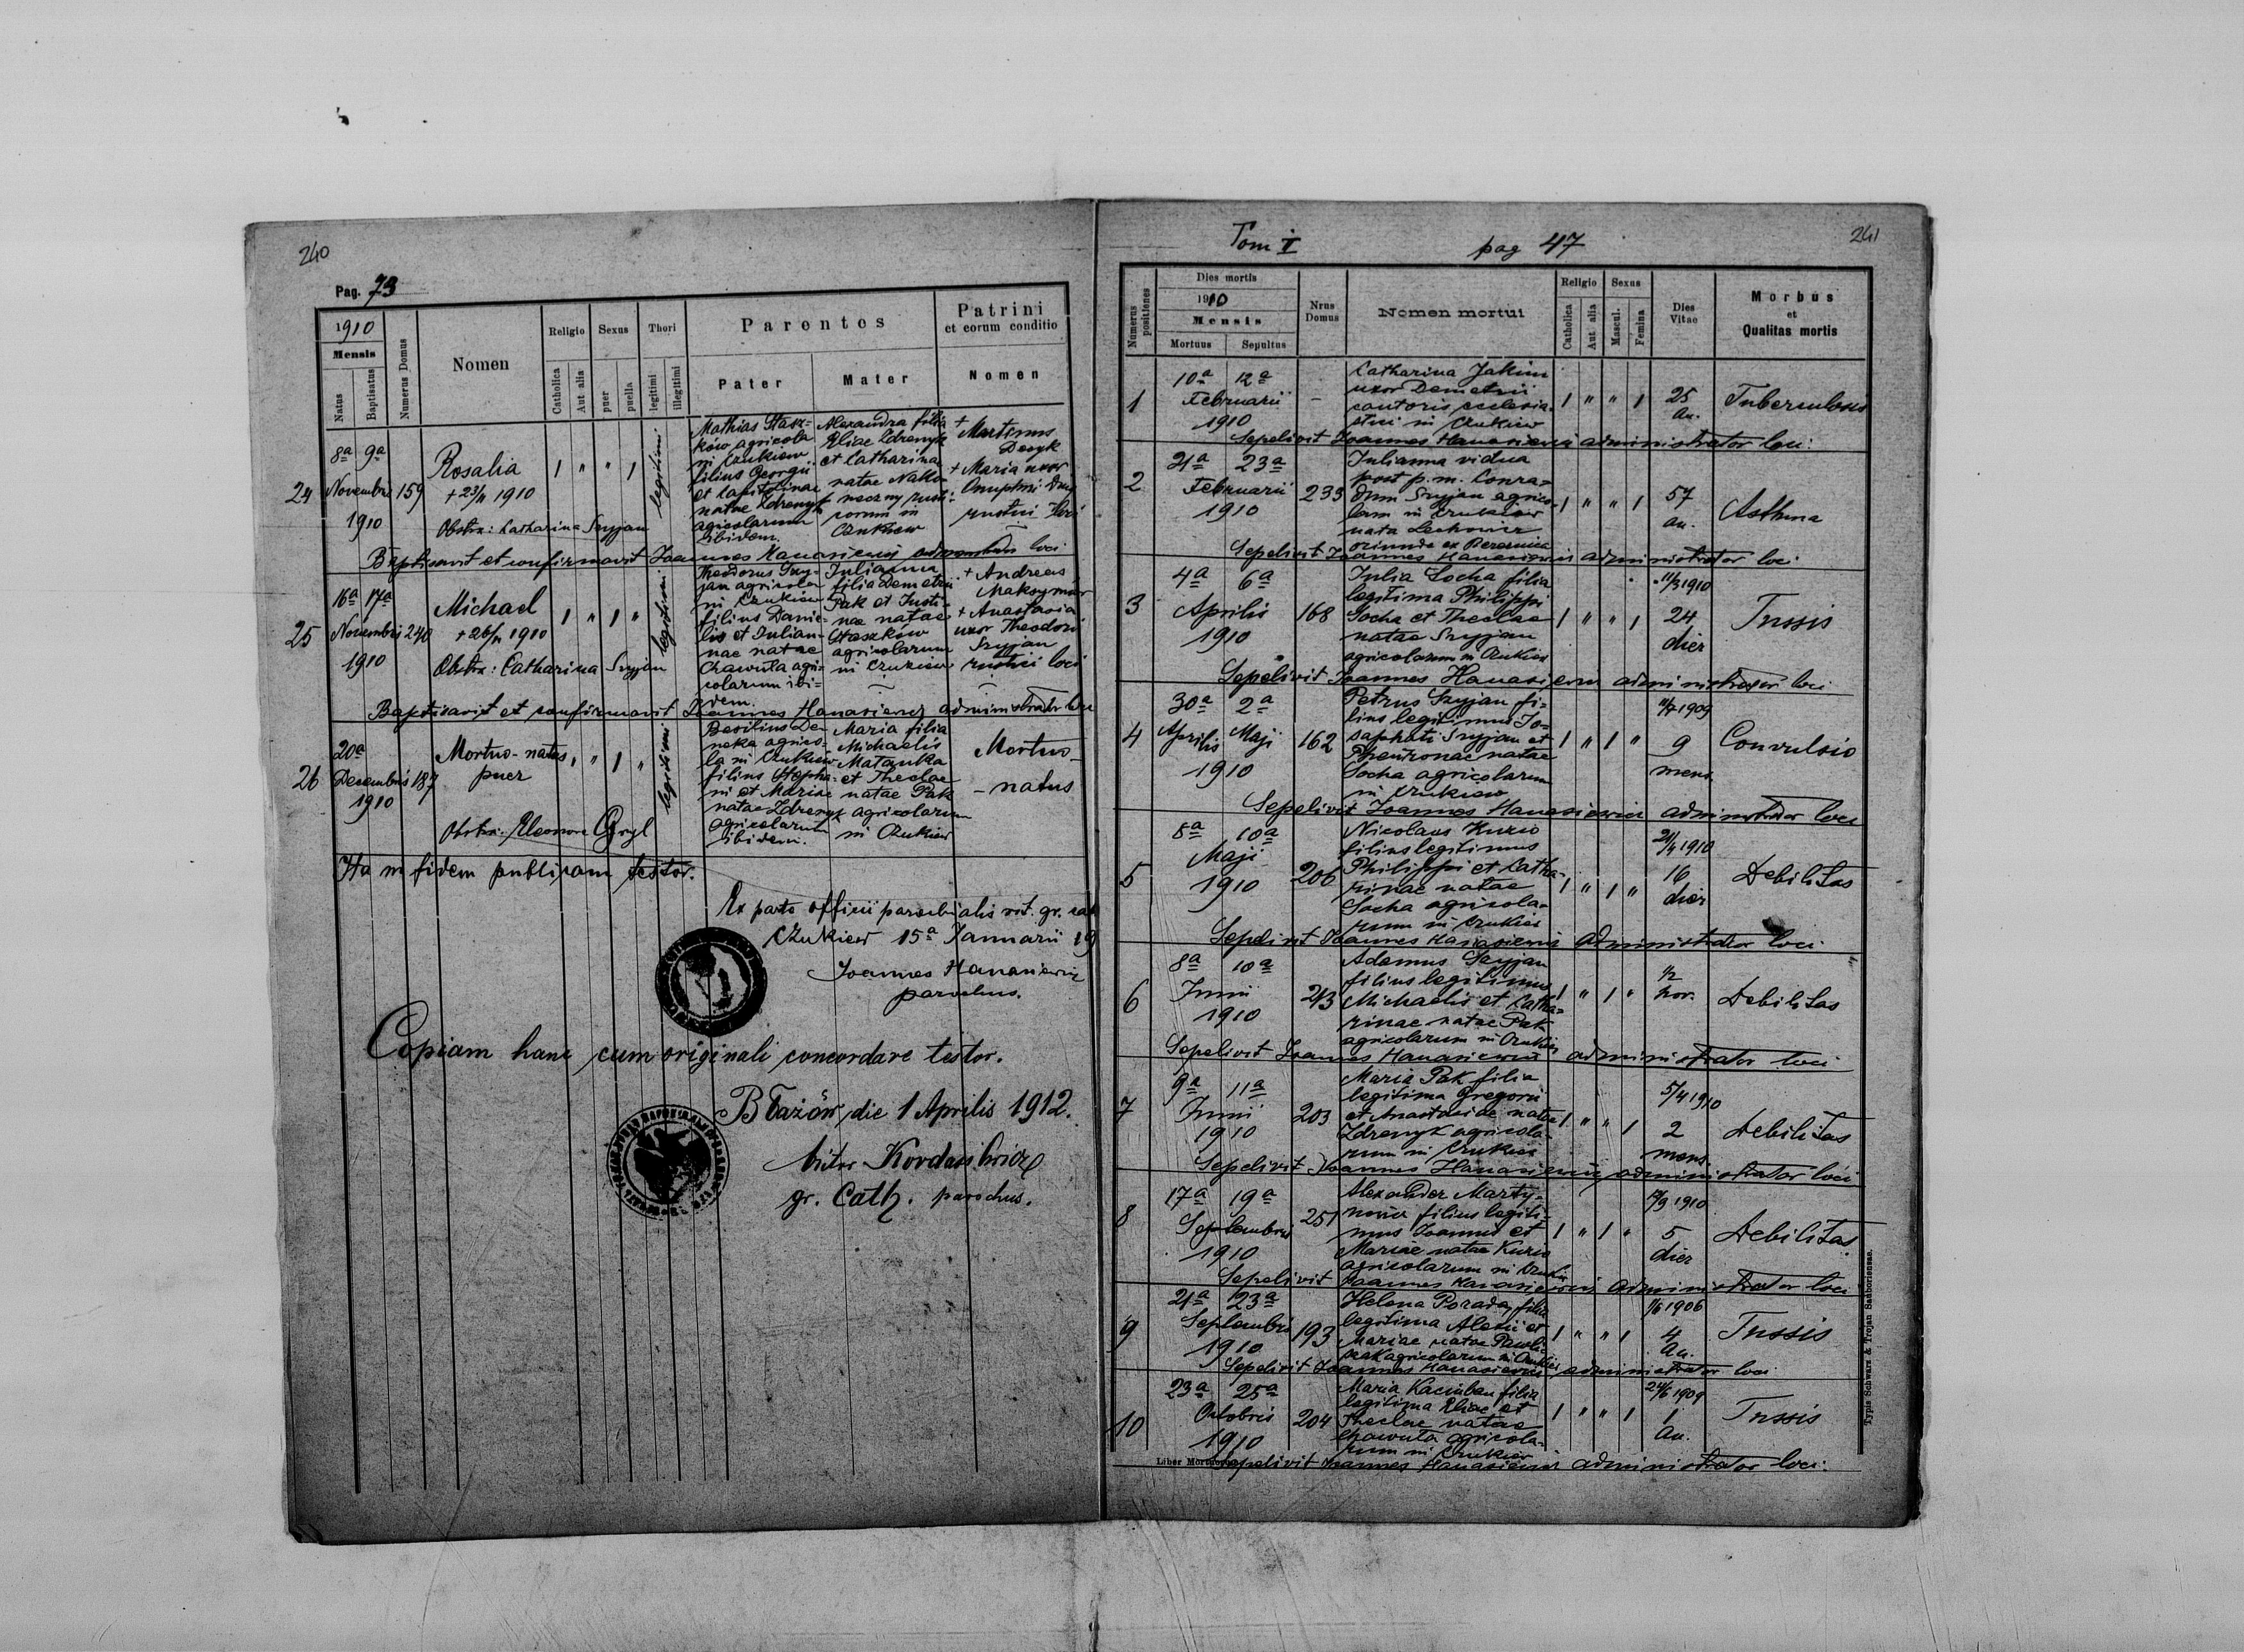 240
Pag. 73
1910
Mensis
Natus
Baptisatus
Numerus Domus
Nomen
Religio
Catholica
Aut alia
Sexus
puer
puella
Thori
legitimi
illegitimi
Parentes
Pater
Mater
Patrini
et eorum conditio
Nomen
24
8a 9a
Novembris
1910
159
Rosalia
+ 23/11 1910
Obstx: Catharina Szyjan
legitimi
Mathias Stasz-
ków agricola
in Czukiew
filius Georgii
et Capitolinae
natae Zdrenyk
agricolarum
ibidem.
Alexandra filia
Eliae Zdrenyk
et Catharina
natae
in
Czukiew
+ Martinus
+ Maria uxor
Onuphrii
rustici loci
Baptisavit et confirmavit Joannes Hanasiewicz loci
25
16a 17a
Novembris
1910
240
Michael
+ 26/11 1910
Obstx: Catharina Szyjan
legitimi
Theodorus Szy-
jan agricola
in Czukiew
filius Danie-
lis et Julian-
nae natae
Chawuła agri-
colarum ibi-
dem.
Julianna
filia Demetrii
Pak et Justi-
nae natae
Staszków
agricolarum
in Czukiew
+ Andreas
Maksymiar
+ Anastasia
uxor Theodori
Szyjan
rustici loci
Baptisavit et confirmavit Joannes Hanasiewicz administrator loci
26
20a
Decembris
1910
187
Mortuo-natus
puer
Obstx: Eleonora Gryl
legitimi
Basilius De-
neka agrico-
la in Czukiew
filius Stepha-
ni et Mariae
natae Zdrenyk
agricolarum
ibidem.
Maria filia
Michaelis
Matanka
et Theclae
natae Pak
agricolarum
in Czukiew
Mortuo-
- natus
Ita in fidem publicam testor.
Ex parte officii parochialis rit. gr. cat
Czukiew 15a Januarii 19
Joannes Hanasiewicz
parochus.
Copiam hanc cum originali concordare testor.
Błażów, die 1 Aprilis 1912.
gr. Cath. parochus.
Tom I
pag 47
241
Numerus
positiones
Dies mortis
1910
Mensis
Mortuus
Sepultus
Nrus
Domus
Nomen mortui
Religio
Catholica
Aut alia
Sexus
Mascul.
Femina
Dies
Vitae
Morbus
et
Qualitas mortis
1
10a 12a
Februarii
1910
Catharina Jakim
uxor Demetrii
cantoris ecclesia-
stici in Czukiew
25
an.
Tuberculosis
Sepelivit Joannes Hanasiewicz administrator loci
2
21a 23a
Februarii
1910
233
Julianna vidua
post p. m. Conra-
dum Szyjan agrico-
lam in Czukiew
nata Lechowicz
oriunda ex Bereznica
57
an.
Asthma
Sepelivit Joannes Hanasiewicz administrator loci
3
4a 6a
Aprilis
1910
168
Julia Socha filia
legitima Philippi
Socha et Theclae
natae Szyjan
agricolarum in Czukiew
11/3 1910
24
dier
Tussis
Sepelivit Joannes Hanasiewicz administrator loci
4
30a 2a
Aprilis Maji
1910
162
Petrus Szyjan fi-
lius legitimus Jo-
saphati Szyjan et
Pheuronae natae
Socha agricolarum
in Czukiew
11/7 1909
9
mens.
Convulsio
Sepelivit Joannes Hanasiewicz administrator loci
5
8a 10a
Maji
1910
206
Nicolaus Kuzio
filius legitimus
Philippi et Catha-
rinae natae
Socha agricola-
rum in Czukiew
21/4 1910
16
dier
Debilitas
Sepelivit Joannes Hanasiewicz administrator loci
6
8a 10a
Junii
1910
243
Adamus Szyjan
filius legitimus
Michaelis et Catha-
rinae natae Pak
agricolarum in Czukiew
1/2
hor.
Debilitas
Sepelivit Joannes Hanasiewicz administrator loci
7
9a 11a
Junii
1910
203
Maria Pak filia
legitima Gregorii
et Anastasiae natae
Zdrenyk agricola-
rum in Czukiew
5/4 1910
2
mens
Debilitas
Sepelivit Joannes Hanasiewicz administrator loci
8
17a 19a
Septembris
1910
251
Alexander Marty-
nowicz filius legiti-
mus Joannis et
Mariae natae Kuzio
agricolarum in Czukiew
/9 1910
5
dier
Debilitas
Sepelivit Joannes Hanasiewicz administrator loci
9
21a 23a
Septembris
1910
193
Helena Porada filia
legitima Alexii et
Mariae natae Pawli-
szak agricolarum in Czukiew
1/6 1906
4
an.
Tussis
Sepelivit Joannes Hanasiewicz administrator loci
10
23a 25a
Octobris
1910
204
Maria Kaciuban filia
legitima Eliae et
Theclae natae
Chawuła agricola-
rum in Czukiew
24/6 1909
1
an.
Tussis
Liber Mortuorum
Sepelivit Joannes Hanasiewicz administrator loci
Typis Schwarz & Trojan Samboriensae.